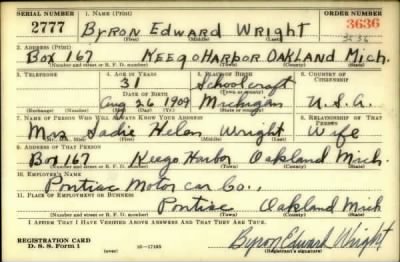 SERIAL NUMBER 1. NAME (Print) ORDER NUMBER
2777 Byron Edward Wright 3636
(First) (Middle) (Last) 3636
2. ADDRESS (Print)
Box 167 Keego Harbor Oakland Mich.
(Number and street or R. F. D. number) (Town) (County) (State)
3. TELEPHONE 4. AGE IN YEARS 5. PLACE OF BIRTH 6. COUNTRY OF CITIZENSHIP
31 Schoolcraft
DATE OF BIRTH (Town or county)
Aug 26 1909 Michigan U.S.A.
(Exchange) (Number) (Mo.) (Day) (Yr.) (State or country)
7. NAME OF PERSON WHO WILL ALWAYS KNOW YOUR ADDRESS 8. RELATIONSHIP OF THAT PERSON
Mrs Sadie Helen Wright Wife
(Mr., Mrs., Miss) (First) (Middle) (Last)
9. ADDRESS OF THAT PERSON
Box 167 Keego Harbor Oakland Mich.
(Number and street or R. F. D. number) (Town) (County) (State)
10. EMPLOYER'S NAME
Pontiac Motor Car Co.,
11. PLACE OF EMPLOYMENT OR BUSINESS
Pontiac Oakland Mich
(Number and street or R. F. D. number) (Town) (County) (State)
I AFFIRM THAT I HAVE VERIFIED ABOVE ANSWERS AND THAT THEY ARE TRUE.
REGISTRATION CARD
D. S. S. Form 1 (over) 16-17105 Byron Edward Wright
(Registrant's signature)